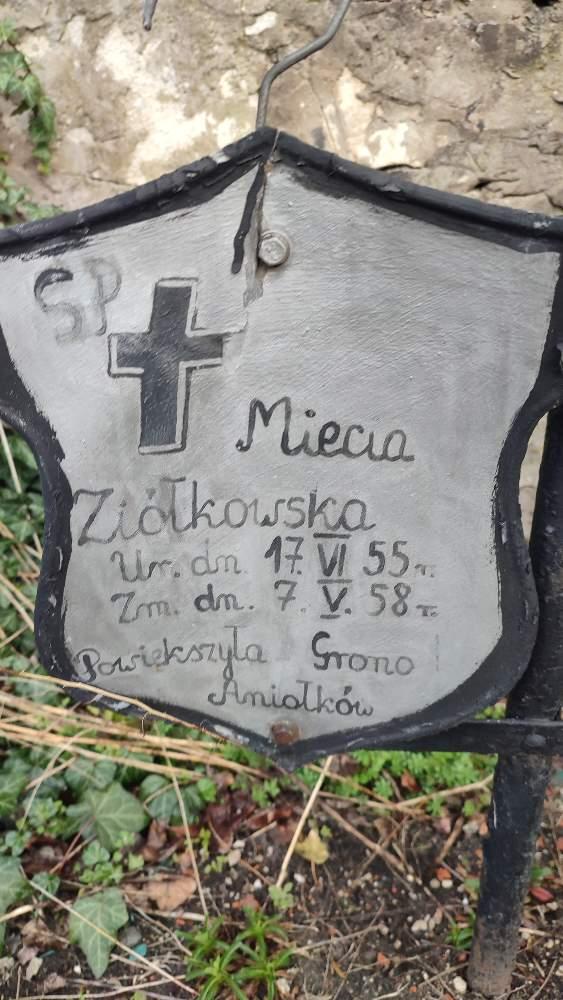 SP
Miecia
Ziółkowska
Ur. dn. 17. VI 55 r.
Zm. dn. 7. V. 58 r.
Powiększyła Grono
Aniołków